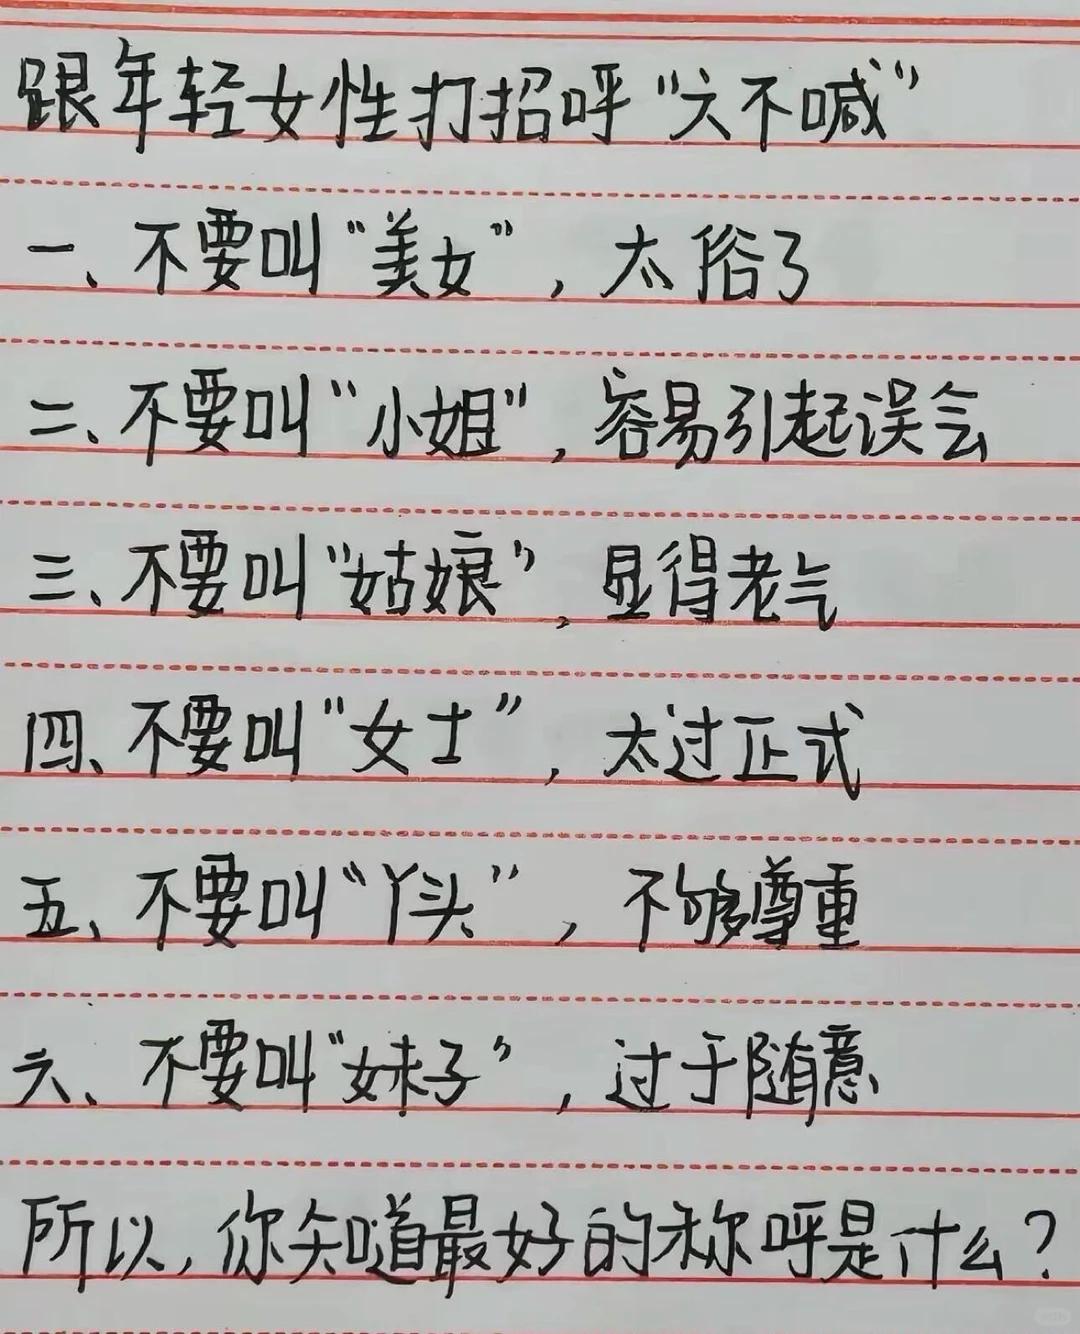 跟年轻女性打招呼“六不喊”
一、不要叫“美女”，太俗了
二、不要叫“小姐”，容易引起误会
三、不要叫“姑娘”，显得老气
四、不要叫“女士”，太过正式
五、不要叫“丫头”，不够尊重
六、不要叫“妹子”，过于随意
所以，你知道最好的称呼是什么？